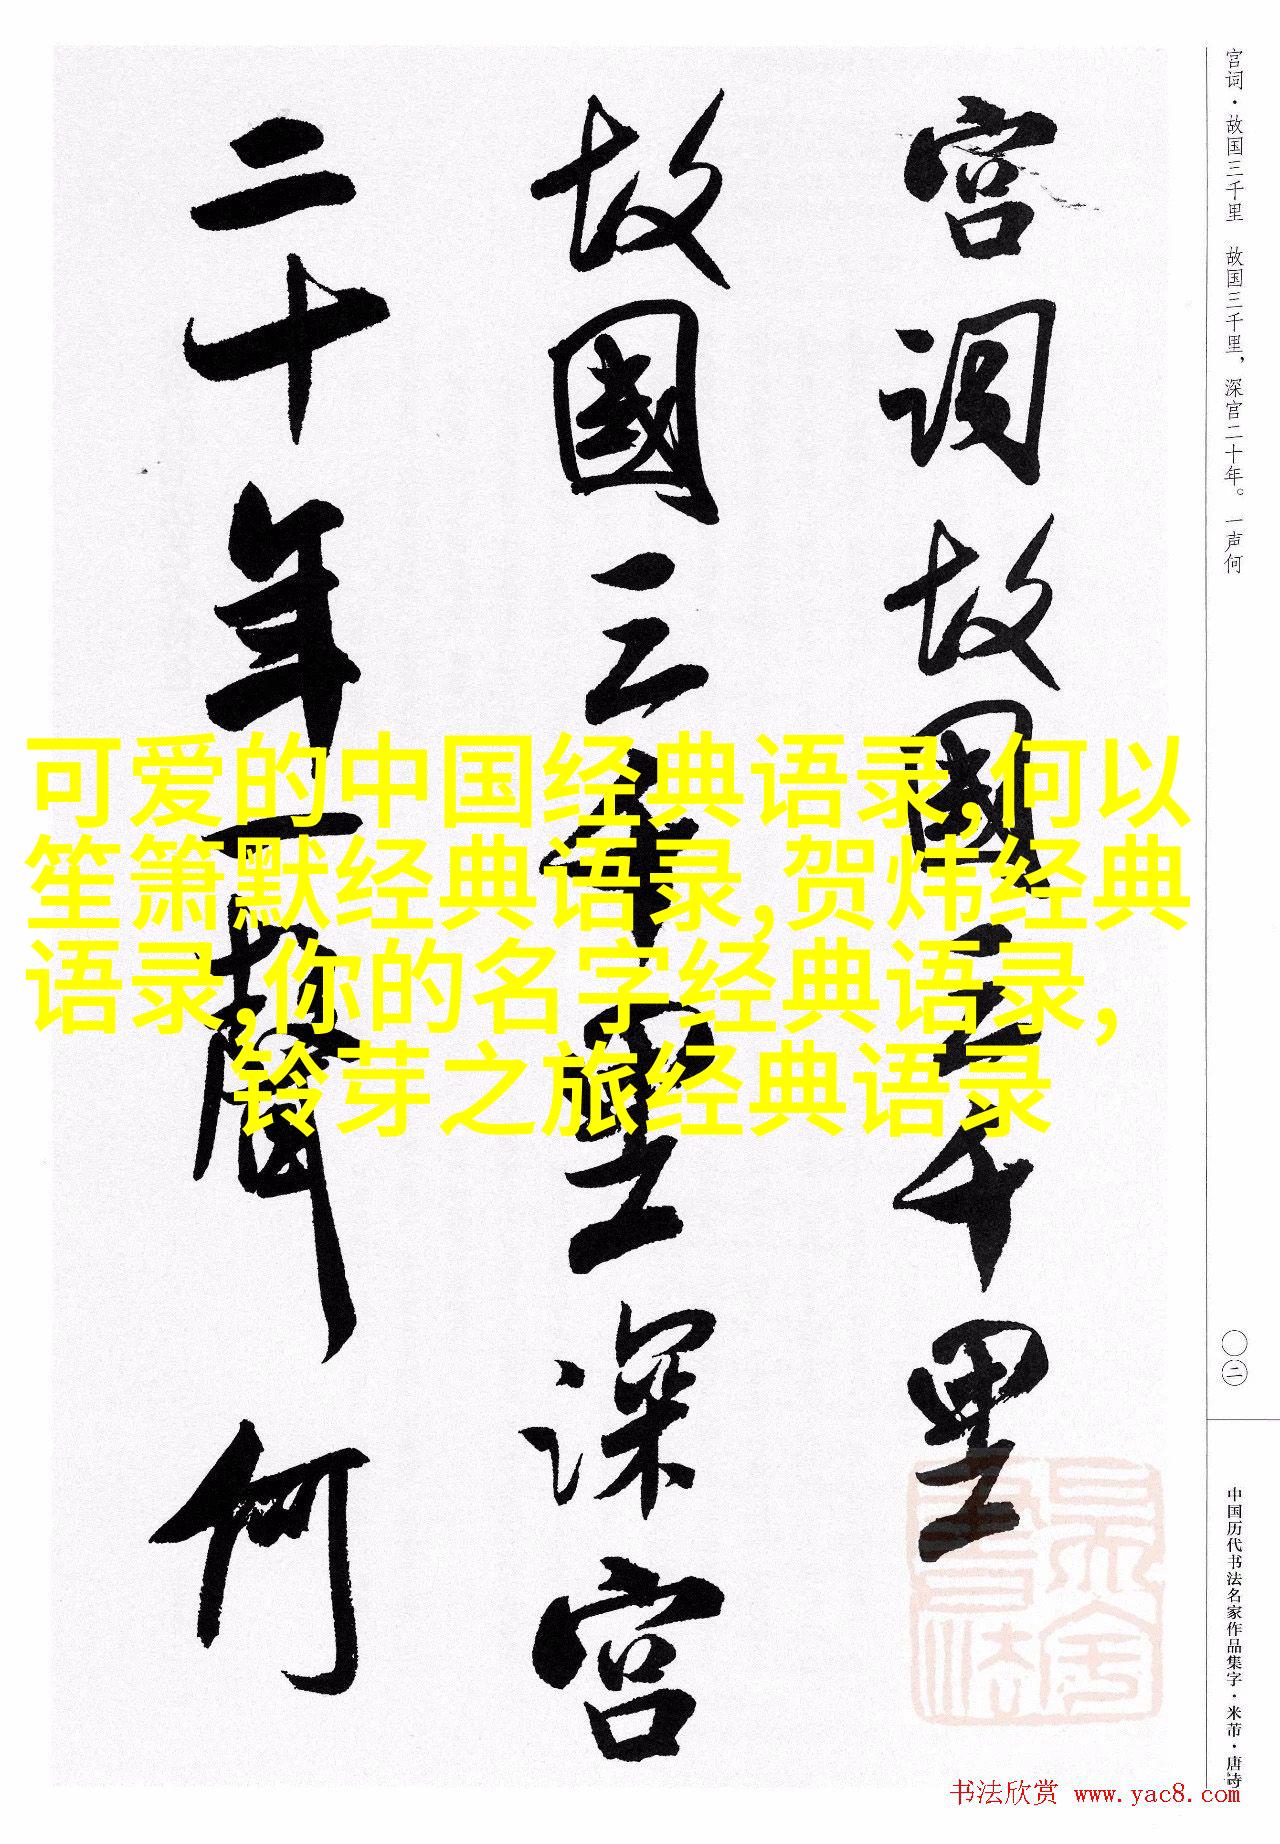 宫词·故国三千里 故国三千里，深宫二十年。一声何
宫词故國三千里
故國三千里深宫
二十年一聲何
可爱的中国经典语录,何以
笙箫默经典语录,贺炜经典
语录,你的名字经典语录,
铃芽之旅经典语录
〇二
中国历代书法名家作品集字·米芾·唐诗
书法欣赏 www.yac8.com